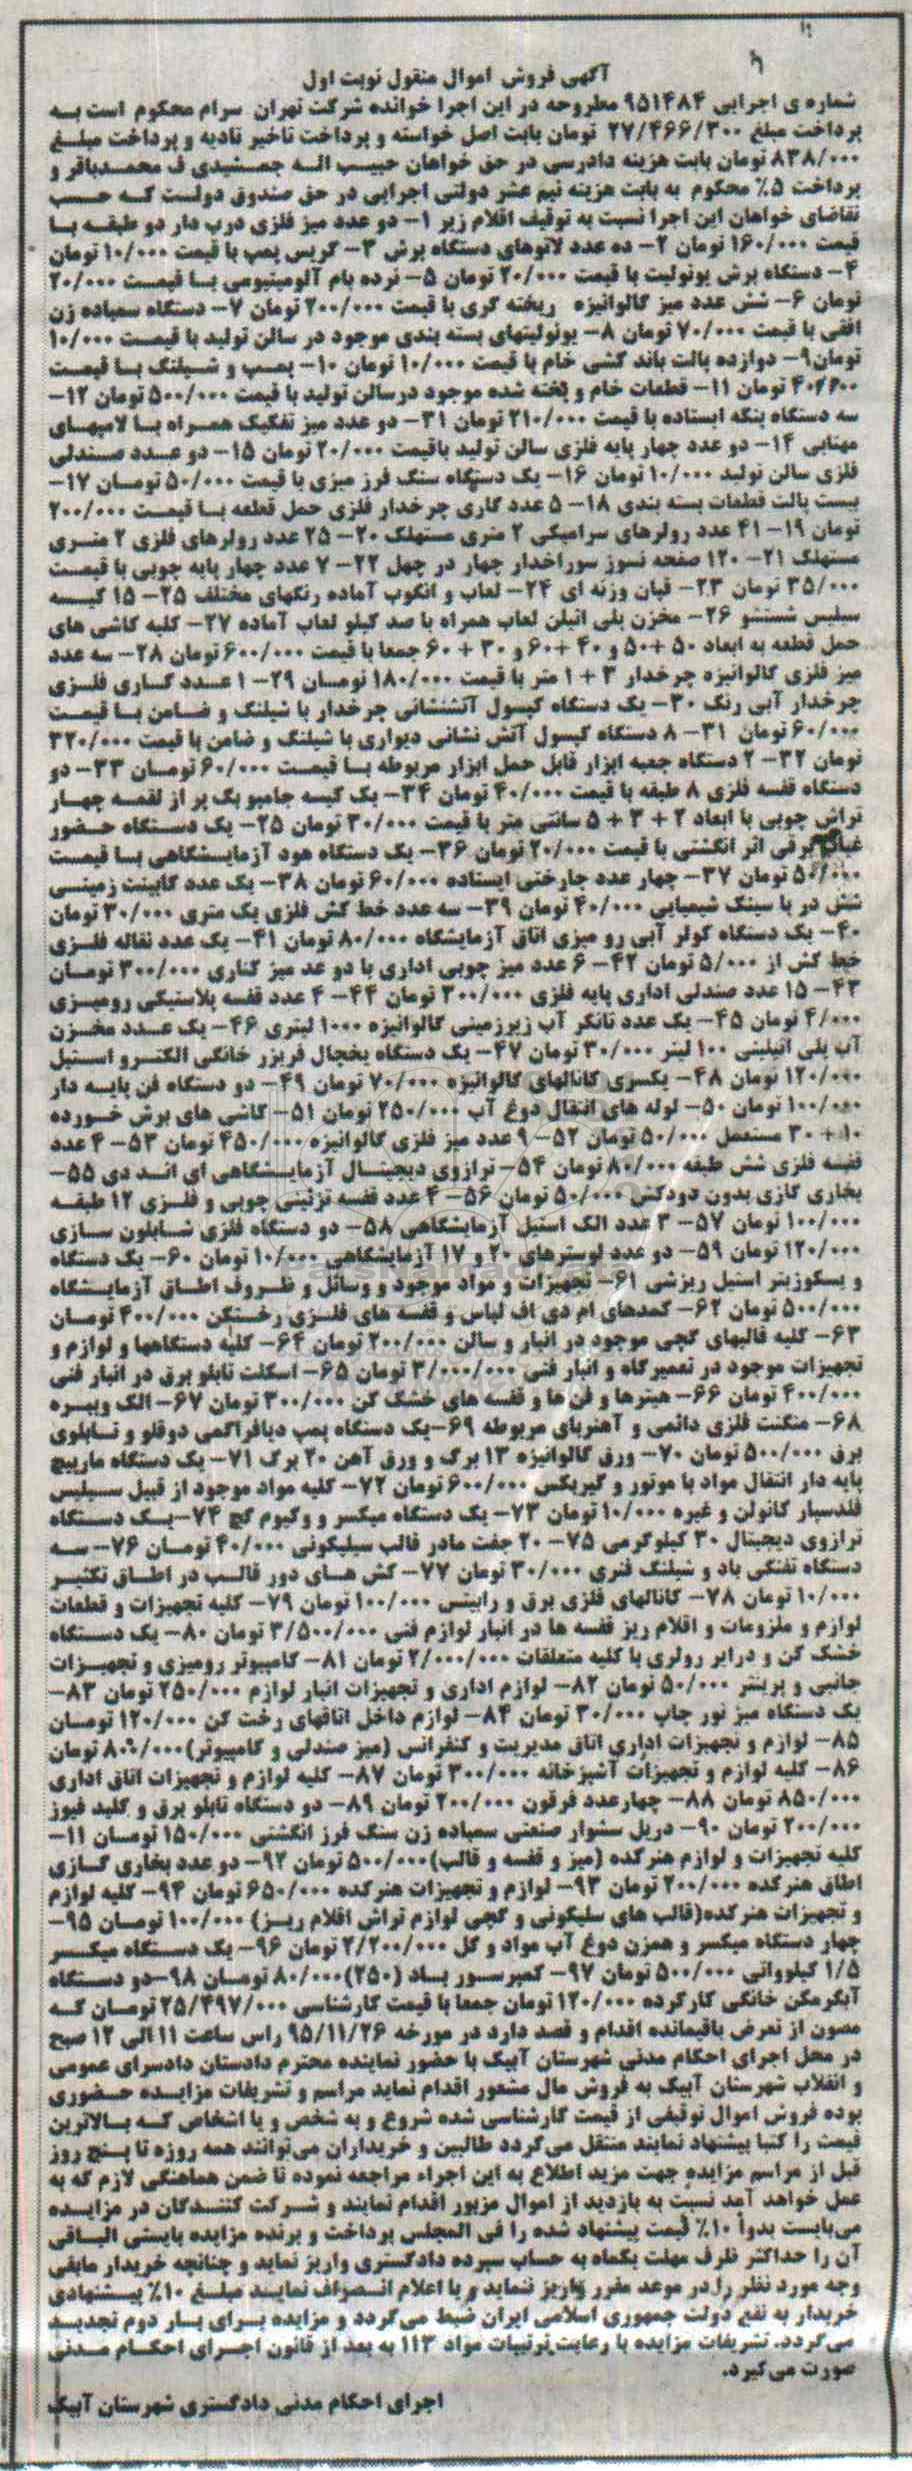 آگهی فروش اموال منقول نوبت اول
شماره ی اجرایی ۹۵۱۴۸۴ مطروحه در این اجرا خوانده شرکت تهران سرام محکوم است به
پرداخت مبلغ ۲۷/۴۶۶/۳۰۰ تومان بابت اصل خواسته و پرداخت تاخیر تادیه و پرداخت مبلغ
۸۳۸/۰۰۰ تومان بابت هزینه دادرسی در حق خواهان حبیب اله جمشیدی ف محمدباقر و
پرداخت ۵٪ محکوم به بابت هزینه نیم عشر دولتی اجرایی در حق صندوق دولت که حسب
تقاضای خواهان این اجرا نسبت به توقیف اقلام زیر ۱- دو عدد میز فلزی درب دار دو طبقه با
قیمت ۱۶۰/۰۰۰ تومان ۲- ده عدد لانوهای دستگاه برش ۳- گریس پمپ با قیمت ۱۰/۰۰۰ تومان
۴- دستگاه برش یونولیت با قیمت ۲۰/۰۰۰ تومان ۵- نرده بام آلومینیومی با قیمت ۲۰/۰۰۰
تومان ۶- شش عدد میز گالوانیزه ریخته گری با قیمت ۲۰۰/۰۰۰ تومان ۷- دستگاه سمباده زن
افقی با قیمت ۷۰/۰۰۰ تومان ۸- یونولیتهای بسته بندی موجود در سالن تولید با قیمت ۱۰/۰۰۰
تومان۹- دوازده پالت باند کشی خام با قیمت ۱۰/۰۰۰ تومان ۱۰- پمپ و شیلنگ با قیمت
تومان ۱۱- قطعات خام و پخته شده موجود درسالن تولید با قیمت ۵۰۰/۰۰۰ تومان ۱۲-
سه دستگاه پنکه ایستاده با قیمت ۲۱۰/۰۰۰ تومان ۳۱- دو عدد میز تفکیک همراه با لامپهای
مهتابی ۱۴- دو عدد چهار پایه فلزی سالن تولید باقیمت ۲۰/۰۰۰ تومان ۱۵- دو عدد صندلی
فلزی سالن تولید ۱۰/۰۰۰ تومان ۱۶- یک دستگاه سنگ فرز میزی با قیمت ۵۰/۰۰۰ تومان ۱۷-
بیست پالت قطعات بسته بندی ۱۸- ۵ عدد گاری چرخدار فلزی حمل قطعه با قیمت ۲۰۰/۰۰۰
تومان ۱۹- ۴۱ عدد رولرهای سرامیکی ۲ متری مستهلک ۲۰- ۲۵ عدد رولرهای فلزی ۲ متری
مستهلک ۲۱- ۱۲۰ صفحه نسوز سوراخدار چهار در چهل ۲۲- ۷ عدد چهار پایه چوبی با قیمت
۳۵/۰۰۰ تومان ۲۳- قپان وزنه ای ۲۴- لعاب و انگوب آماده رنگهای مختلف ۲۵- ۱۵ کیسه
سیلیس شستشو ۲۶- مخزن پلی اتیلن لعاب همراه با صد کیلو لعاب آماده ۲۷- کلیه کاشی های
حمل قطعه به ابعاد ۵۰ +۵۰ و ۴۰ +۶۰ و ۳۰ + ۶۰ جمعا با قیمت ۶۰۰/۰۰۰ تومان ۲۸- سه عدد
میز فلزی گالوانیزه چرخدار ۳ + ۱ متر با قیمت ۱۸۰/۰۰۰ تومان ۲۹- ۱ عدد گاری فلزی
چرخدار آبی رنگ ۳۰- یک دستگاه کپسول آتشنشانی چرخدار با شیلنگ و ضامن با قیمت
۶۰/۰۰۰ تومان ۳۱- ۸ دستگاه کپسول آتش نشانی دیواری با شیلنگ و ضامن با قیمت ۳۲۰/۰۰۰
تومان ۳۲- ۲ دستگاه جعبه ابزار قابل حمل ابزار مربوطه با قیمت ۶۰/۰۰۰ تومان ۳۳- دو
دستگاه قفسه فلزی ۸ طبقه با قیمت ۴۰/۰۰۰ تومان ۳۴- یک کیسه جامبو بک پر از لقمه چهار
تراش چوبی با ابعاد ۲ + ۳ + ۵ سانتی متر با قیمت ۳۰/۰۰۰ تومان ۲۵- یک دستگاه حضور
غیاب برقی اثر انگشتی با قیمت ۲۰/۰۰۰ تومان ۳۶- یک دستگاه هود آزمایشگاهی با قیمت
۵۰/۰۰۰ تومان ۳۷- چهار عدد جارختی ایستاده ۶۰/۰۰۰ تومان ۳۸- یک عدد کابینت زمینی
شش در با سینک شیمیایی ۴۰/۰۰۰ تومان ۳۹- سه عدد خط کش فلزی یک متری ۳۰/۰۰۰ تومان
۴۰- یک دستگاه کولر آبی رو میزی اتاق آزمایشگاه ۸۰/۰۰۰ تومان ۴۱- یک عدد نقاله فلزی
خط کش از ۵/۰۰۰ تومان ۴۲- ۶ عدد میز چوبی اداری با دو عد میز کناری ۳۰۰/۰۰۰ تومان
۴۳- ۱۵ عدد صندلی اداری پایه فلزی ۳۰۰/۰۰۰ تومان ۴۴- ۴ عدد قفسه پلاستیکی رومیزی
۴/۰۰۰ تومان ۴۵- یک عدد تانکر آب زیرزمینی گالوانیزه ۱۰۰۰ لیتری ۴۶- یک عدد مخزن
آب پلی اتیلینی ۱۰۰ لیتر ۳۰/۰۰۰ تومان ۴۷- یک دستگاه یخچال فریزر خانگی الکترو استیل
۱۲۰/۰۰۰ تومان ۴۸- یکسری کانالهای گالوانیزه ۷۰/۰۰۰ تومان ۴۹- دو دستگاه فن پایه دار
۱۰۰/۰۰۰ تومان ۵۰- لوله های انتقال دوغ آب ۲۵۰/۰۰۰ تومان ۵۱- کاشی های برش خورده
۱۰ + ۳۰ مستعمل ۵۰/۰۰۰ تومان ۵۲- ۹ عدد میز فلزی گالوانیزه ۴۵۰/۰۰۰ تومان ۵۳- ۴ عدد
قفسه فلزی شش طبقه ۸۰/۰۰۰ تومان ۵۴- ترازوی دیجیتال آزمایشگاهی ای اند دی ۵۵-
بخاری گازی بدون دودکش ۵۰/۰۰۰ تومان ۵۶- ۴ عدد قفسه تزئینی چوبی و فلزی ۱۲ طبقه
۱۰۰/۰۰۰ تومان ۵۷- ۳ عدد الک استیل آزمایشگاهی ۵۸- دو دستگاه فلزی شابلون سازی
۱۲۰/۰۰۰ تومان ۵۹- دو عدد لوسترهای ۲۰ و ۱۷ آزمایشگاهی ۱۰/۰۰۰ تومان ۶۰- یک دستگاه
ویسکوزیتر استیل ریزشی ۶۱- تجهیزات و مواد موجود و وسائل و ظروف اطاق آزمایشگاه
۵۰۰/۰۰۰ تومان ۶۲- کمدهای ام دی اف لباس و قفسه های فلزی رختکن ۴۰۰/۰۰۰ تومان
۶۳- کلیه قالبهای گچی موجود در انبار و سالن ۲۰۰/۰۰۰ تومان ۶۴- کلیه دستگاهها و لوازم و
تجهیزات موجود در تعمیرگاه و انبار فنی ۳/۰۰۰/۰۰۰ تومان ۶۵- اسکلت تابلو برق در انبار فنی
۴۰۰/۰۰۰ تومان ۶۶- هیترها و فن ها و قفسه های خشک کن ۳۰۰/۰۰۰ تومان ۶۷- الک ویبره
۶۸- منگنت فلزی دائمی و آهنربای مربوطه ۶۹-یک دستگاه پمپ دیافراگمی دوقلو و تابلوی
برق ۵۰۰/۰۰۰ تومان ۷۰- ورق گالوانیزه ۱۳ برگ و ورق آهن ۲۰ برگ ۷۱- یک دستگاه مارپیچ
پایه دار انتقال مواد با موتور و گیربکس ۶۰۰/۰۰۰ تومان ۷۲- کلیه مواد موجود از قبیل سیلیس
فلدسپار کائولن و غیره ۱۰/۰۰۰ تومان ۷۳- یک دستگاه میکسر و وکیوم گچ ۷۴-یک دستگاه
ترازوی دیجیتال ۳۰ کیلوگرمی ۷۵- ۲۰ جفت مادر قالب سیلیکونی ۴۰/۰۰۰ تومان ۷۶- سه
دستگاه تفنگی باد و شیلنگ فنری ۳۰/۰۰۰ تومان ۷۷- کش های دور قالب در اطاق تکثیر
۱۰/۰۰۰ تومان ۷۸- کانالهای فلزی برق و رابیتس ۱۰۰/۰۰۰ تومان ۷۹- کلیه تجهیزات و قطعات
لوازم و ملزومات و اقلام ریز قفسه ها در انبار لوازم فنی ۳/۵۰۰/۰۰۰ تومان ۸۰- یک دستگاه
خشک کن و درایر رولری با کلیه متعلقات ۲/۰۰۰/۰۰۰ تومان ۸۱- کامپیوتر رومیزی و تجهیزات
جانبی و پرینتر ۵۰/۰۰۰ تومان ۸۲- لوازم اداری و تجهیزات انبار لوازم ۲۵۰/۰۰۰ تومان ۸۳-
یک دستگاه میز نور چاپ ۳۰/۰۰۰ تومان ۸۴- لوازم داخل اتاقهای رخت کن ۱۲۰/۰۰۰ تومان
۸۵- لوازم و تجهیزات اداری اتاق مدیریت و کنفرانس (میز صندلی و کامپیوتر)۸۰۰/۰۰۰ تومان
۸۶- کلیه لوازم و تجهیزات آشپزخانه ۳۰۰/۰۰۰ تومان ۸۷- کلیه لوازم و تجهیزات اتاق اداری
۸۵۰/۰۰۰ تومان ۸۸- چهارعدد فرقون ۲۰۰/۰۰۰ تومان ۸۹- دو دستگاه تابلو برق و کلید فیوز
۲۰۰/۰۰۰ تومان ۹۰- دریل سشوار صنعتی سمباده زن سنگ فرز انگشتی ۱۵۰/۰۰۰ تومان ۱۱-
کلیه تجهیزات و لوازم هنرکده (میز و قفسه و قالب)۵۰۰/۰۰۰ تومان ۹۲- دو عدد بخاری گازی
اطاق هنرکده ۲۰۰/۰۰۰ تومان ۹۳- لوازم و تجهیزات هنرکده ۶۵۰/۰۰۰ تومان ۹۴- کلیه لوازم
و تجهیزات هنرکده(قالب های سلیکونی و گچی لوازم تراش اقلام ریز) ۱۰۰/۰۰۰ تومان ۹۵-
چهار دستگاه میکسر و همزن دوغ آب مواد و گل ۲/۲۰۰/۰۰۰ تومان ۹۶- یک دستگاه میکسر
۱/۵ کیلوواتی ۵۰۰/۰۰۰ تومان ۹۷- کمپرسور باد (۲۵۰)۸۰/۰۰۰ تومان ۹۸-دو دستگاه
آبگرمکن خانگی کارکرده ۱۲۰/۰۰۰ تومان جمعا با قیمت کارشناسی ۲۵/۴۹۷/۰۰۰ تومان که
مصون از تعرض باقیمانده اقدام و قصد دارد در مورخه ۹۵/۱۱/۲۶ راس ساعت ۱۱ الی ۱۲ صبح
در محل اجرای احکام مدنی شهرستان آبیک با حضور نماینده محترم دادستان دادسرای عمومی
و انقلاب شهرستان آبیک به فروش مال مشعور اقدام نماید مراسم و تشریفات مزایده حضوری
بوده فروش اموال توقیفی از قیمت کارشناسی شده شروع و به شخص و یا اشخاص که بالاترین
قیمت را کتبا پیشنهاد نمایند منتقل می‌گردد طالبین و خریداران می‌توانند همه روزه تا پنج روز
قبل از مراسم مزایده جهت مزید اطلاع به این اجراء مراجعه نموده تا ضمن هماهنگی لازم که به
عمل خواهد آمد نسبت به بازدید از اموال مزبور اقدام نمایند و شرکت کنندگان در مزایده
می‌بایست بدواً ۱۰٪ قیمت پیشنهاد شده را فی المجلس پرداخت و برنده مزایده بایستی الباقی
آن را حداکثر ظرف مهلت یکماه به حساب سپرده دادگستری واریز نماید و چنانچه خریدار مابقی
وجه مورد نظر را در موعد مقرر واریز ننماید و یا اعلام انصراف نمایند مبلغ ۱۰٪ پیشنهادی
خریدار به نفع دولت جمهوری اسلامی ایران ضبط می‌گردد و مزایده برای بار دوم تجدید
می‌گردد. تشریفات مزایده با رعایت ترتیبات مواد ۱۱۳ به بعد از قانون اجرای احکام مدنی
صورت می‌گیرد.
اجرای احکام مدنی دادگستری شهرستان آبیک